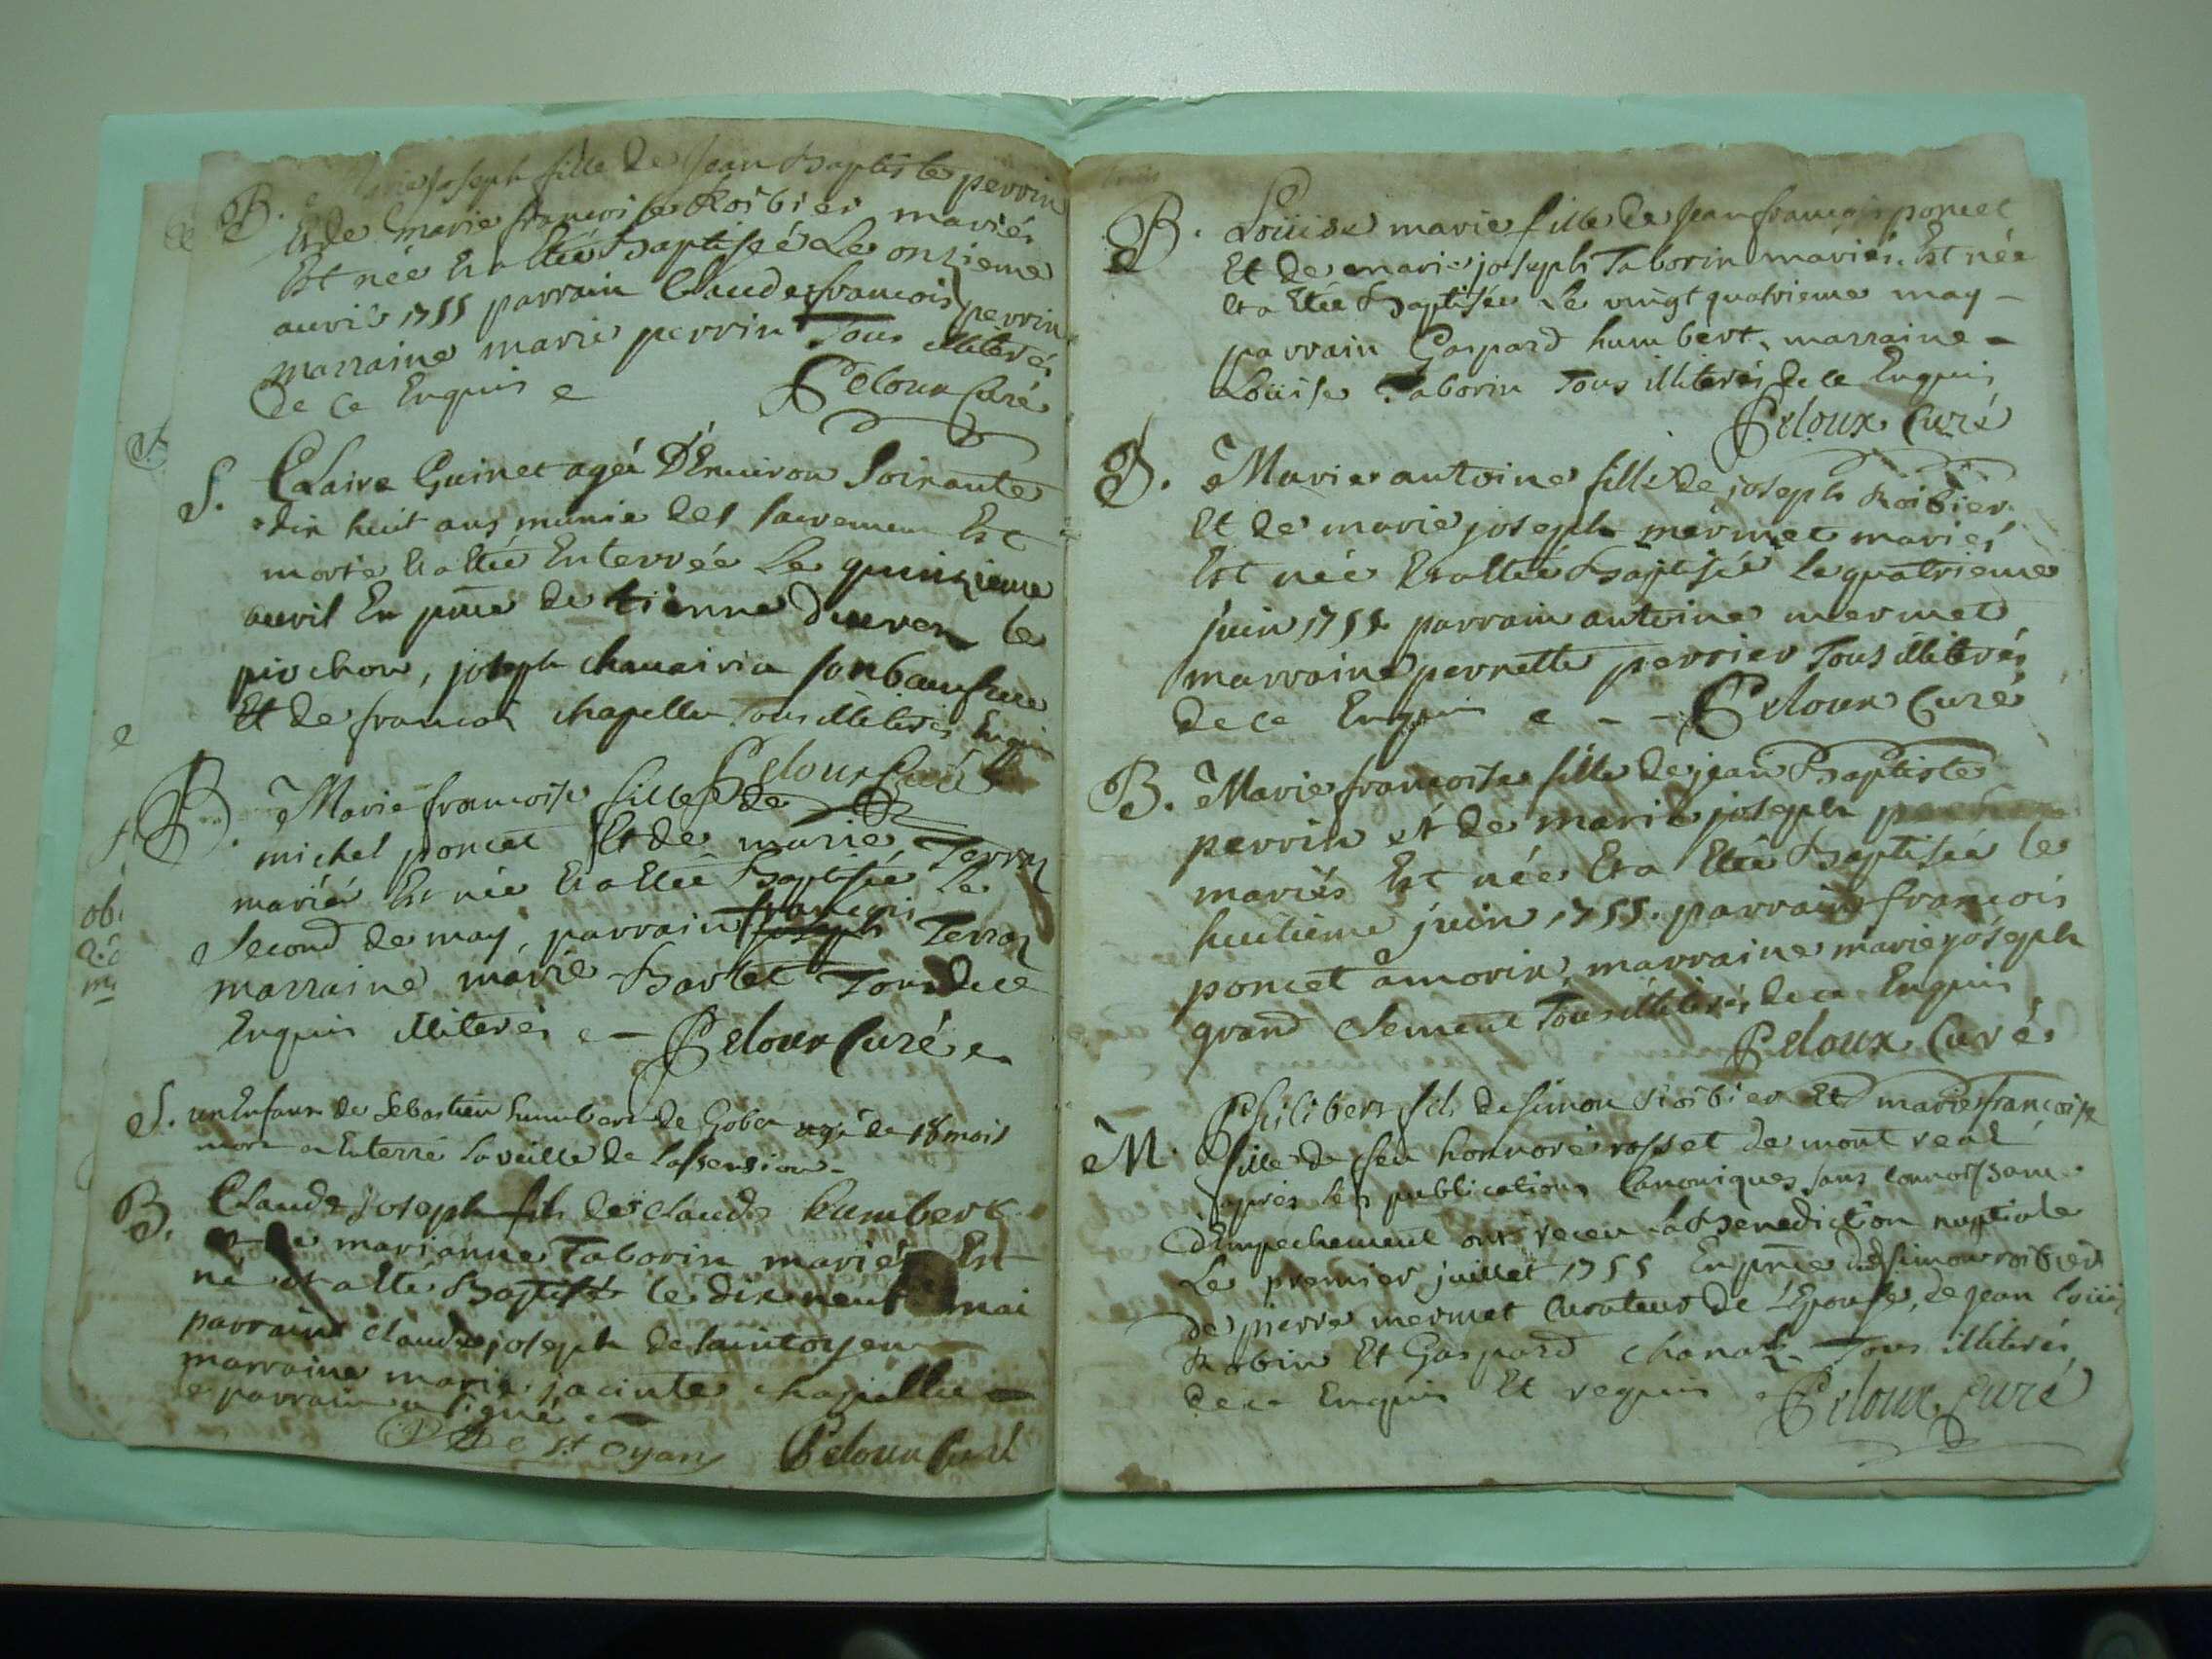 B. Marie joseph fille de Jean Baptiste perrin
Et de marie francoise Roibier mariés
Est née Et a Etée Baptisée Le onzieme
auvril 1755 parrain Claude francois perrin
marraine marie perrin Tous illiterés
de ce Enquis
Peloux Curé
S. Claire Guinet agée D'Environ Soixante
dix huit ans munie des sacremens Est
morte Et a Etée Enterrée Le quinzieme
auvril En pnce de Etienne
pirchon, joseph son beaufrere
Et de francois chapellu Tous illiterés Enquis
Peloux Curé
B. Marie francoise fille de
michel poncet Et de marie Terroz
mariés Est née Et a Etée Baptisée Le
Second de may, parrain francois joseph Terroz
marraine marie Barlet Tous de ce
Enquis illiterés Peloux Curé
S. un Enfant de Sebastien humbert de Gobet agé de 18 mois
mort et Enterré La veille de Lassension
B. Claude joseph fils de claude humbert
et de marianne Taborin mariés Est
né et a Eté Baptisé le dixneuf mai
parrain claude joseph de saintoyen
marraine marie jacinte chapellu
le parrain a signé
De st. Oyan Peloux Curé
B. Loüise marie fille de Jean francois poncet
Et de marie joseph Taborin mariés. Est née
et a Etée Baptisée Le vingt quatrieme may
parrain Gaspard humbert, marraine
Loüise Taborin Tous illiterés de ce Enquis
Peloux Curé
B. Marie antoine fille de joseph Roibier
Et de marie joseph mermet mariés
Est née Et a Etée Baptisée Le quatrieme
juin 1755 parrain antoine mermet
marraine pernette perrier Tous illiterés
de ce Enquis Peloux Curé
B. Marie francoise fille de jean Baptiste
perrin et de marie joseph
mariés Est née Et a Etée Baptisée le
huitieme juin 1755. parrain francois
poncet amorin, marraine marie joseph
grand clement Tous illiterés de ce Enquis
Peloux Curé
M. Philibert fils de simon roibier Et marie francoise
fille de feu honnoré rosset de mont real
apres les publications Canoniques sans connoissance
d'Empechement ont receu La Benediction nuptiale
Le premier juillet 1755 En pnce de simon roibier
de pierre mermet Curateur de L'Epouse, de Jean loüis
Robin Et Gaspard chanal Tous illiterés
de ce Enquis Et requis Peloux Curé